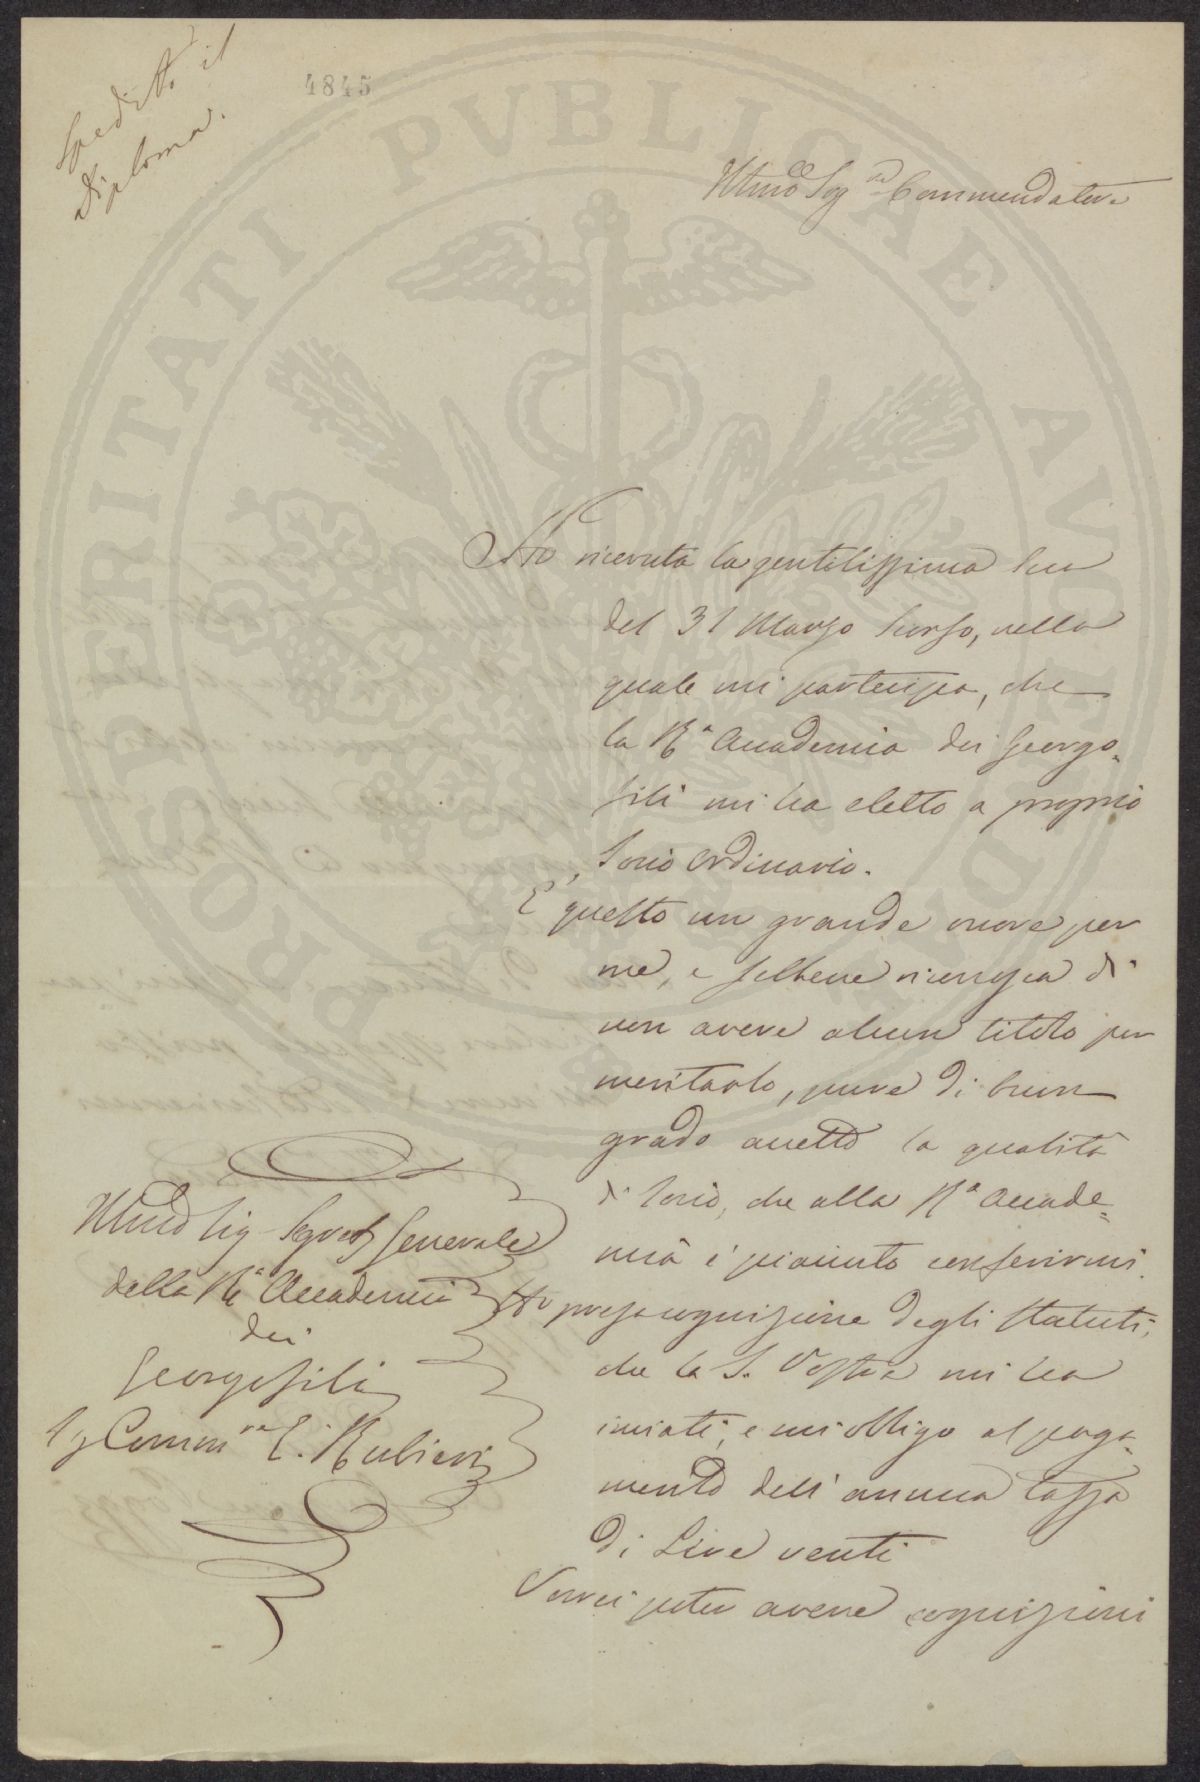 Spedito il
Diploma.
4845
PROSPERITATI PVBLICAE AVGENDAE
Illmo Sig.re Commendatore
Ho ricevuta la gentilissima sua
del 31 Marzo scorso, nella
quale mi partecipa, che
la R.a Accademia dei Georgo=
fili mi ha eletto a proprio
Socio ordinario.
E' questo un grande onore per
me, e sebbene riconosca di
non avere alcun titolo per
meritarlo, pure di buon
grado accetto la qualità
di Socio, che alla R.a Accade=
mia è piaciuto conferirmi.
Ho preso cognizione degli Statuti,
che la S. Vostra mi ha
inviati, e mi obbligo al paga=
mento dell'annua tassa
di Lire venti
Vorrei poter avere cognizioni
Illmo Sig. Segret Generale
della R.a Accademia
dei
Georgofili
Sig Comm.re E. Rubieri